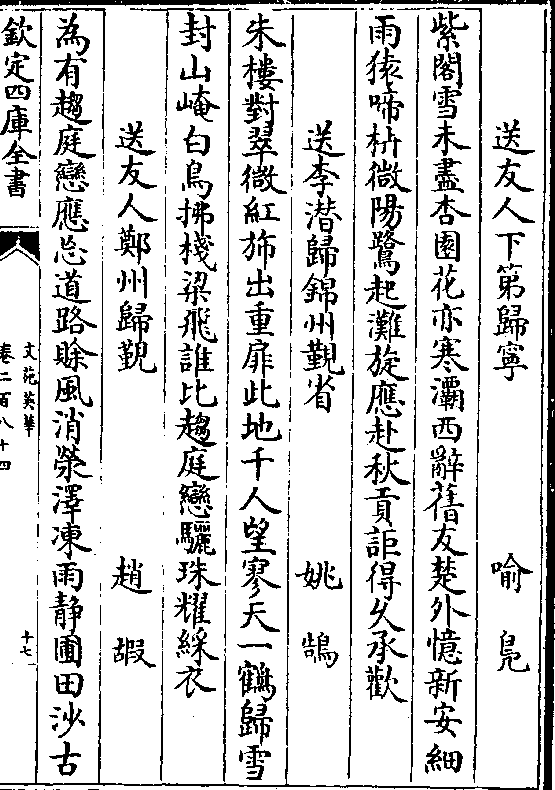 送友人下第歸寧 喻凫
紫閣雪未盡杏園花亦寒灞西辭舊友楚外憶新安細
雨猿啼枿微陽鷺起灘旋應赴秋貢詎得久承歡
送李潛歸錦州覲省 姚鵠
朱樓對翠微紅斾出重扉此地千人望寥天一鶴歸雪
封山崦白鳥拂棧梁飛誰比趨庭戀驪珠耀綵衣
送友人鄭州歸覲 趙嘏
為有趨庭戀應忘道路賒風消滎澤凍雨静圃田沙古
欽定四庫全書
文苑英華
卷二百八十四
十七